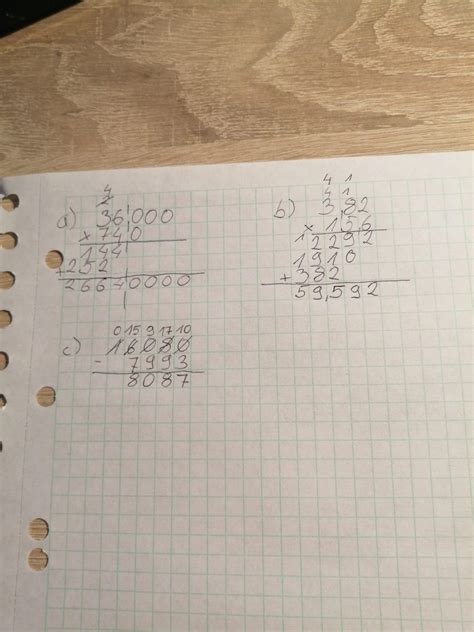 4
2
a) 36000
x 740
144
+252
26640000
4 1
4 1
b) 3,82
x 156
1
2292
1910
+382
59,592
0 15 9 17 10
c) 16080
- 7993
8087